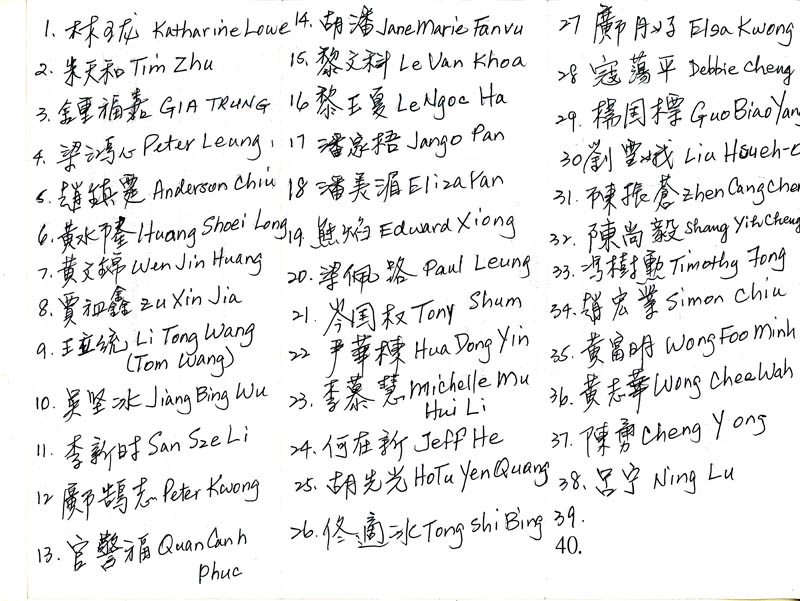 1. 林玉龙 Katharine Lowe
2. 朱天和 Tim Zhu
3. 鍾重福嘉 GIA TRUNG
4. 梁鴻心 Peter Leung
5. 趙鎮霆 Anderson Chiu
6. 黄水隆 Huang Shoei Long
7. 黄文錦 Wen Jin Huang
8. 賈祖鑫 Zu Xin Jia
9. 王立统 Li Tong Wang
(Tom Wang)
10. 吳坚冰 Jiang Bing Wu
11. 李新时 San Sze Li
12 鄺鹄志 Peter Kwong
13. 官警福 Quan Canh
Phuc
14. 胡潘 Jane Marie Fanvu
15. 黎文科 Le Van Khoa
16 黎玉夏 Le Ngoc Ha
17 潘家梧 Jango Pan
18 潘美湄 Eliza Fan
19. 熊焰 Edward Xiong
20. 梁佩路 Paul Leung
21. 岑国权 Tony Shum
22 尹華棟 Hua Dong Yin
23. 李慕慧 Michelle Mu
Hui Li
24. 何在新 Jeff He
25. 胡先光 Ho Tu Yen Quang
26. 佟適冰 Tong Shi Bing
27 鄺月好 Elsa Kwong
28 寇蕩平 Debbie Cheng
29. 楊国標 Guo Biao Yang
30 劉雪我 Liu Hsueh-
31. 陳振蒼 Zhen Cang Chen
32. 陳尚毅 Shang Yih Cheng
33. 馮樹勳 Timothy Fong
34. 趙宏業 Simon Chiu
35. 黄富明 Wong Foo Minh
36. 黄志華 Wong Chee Wah
37. 陳勇 Cheng Yong
38. 呂宁 Ning Lu
39.
40.